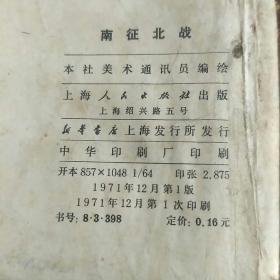 南征北战
本社美术通讯员编绘
上海人民出版社出版
上海绍兴路五号
新华书店上海发行所发行
中华印刷厂印刷
开本 857×1048 1/64 印张 2.875
1971年12月第1版
1971年12月第1次印刷
书号：8·3·398 定价：0.16元